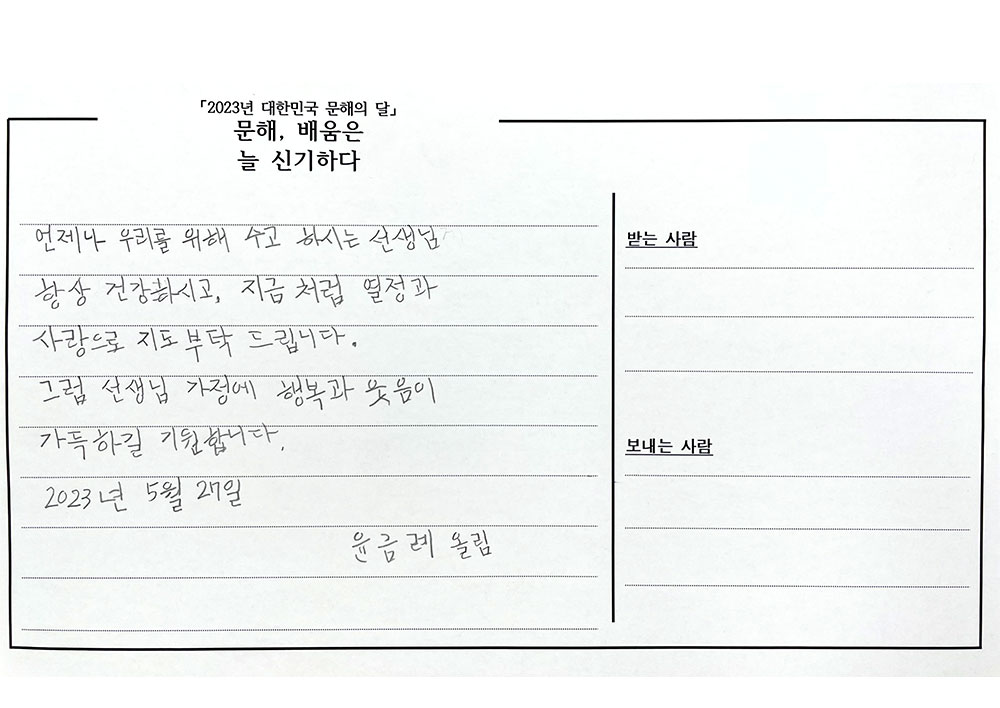 「2023년 대한민국 문해의 달」
문해, 배움은
늘 신기하다
언제나 우리를 위해 수고 하시는 선생님
항상 건강하시고, 지금 처럼 열정과
사랑으로 지도 부탁 드립니다.
그럼 선생님 가정에 행복과 웃음이
가득하길 기원합니다.
2023년 5월 27일
윤금례 올림
받는 사람
보내는 사람